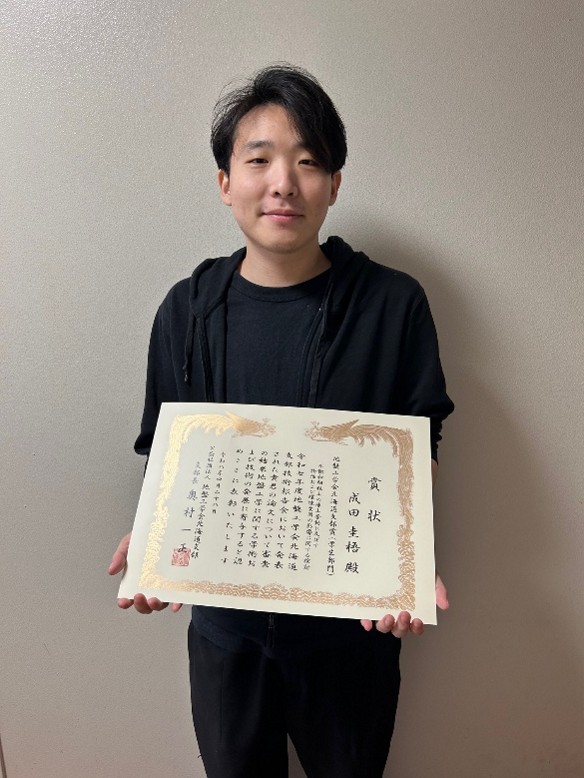 賞状
成田圭悟 殿
地盤工学会北海道支部賞(学生部門)
令和七年度地盤工学会北海道
支部技術報告会において発表
された貴君の論文について審査
の結果地盤工学に関する学術お
よび技術の発展に寄与すると認
めここに表彰いたします
令和八年四月二十八日
公益社団法人 地盤工学会北海道支部
支部長 奥村一正